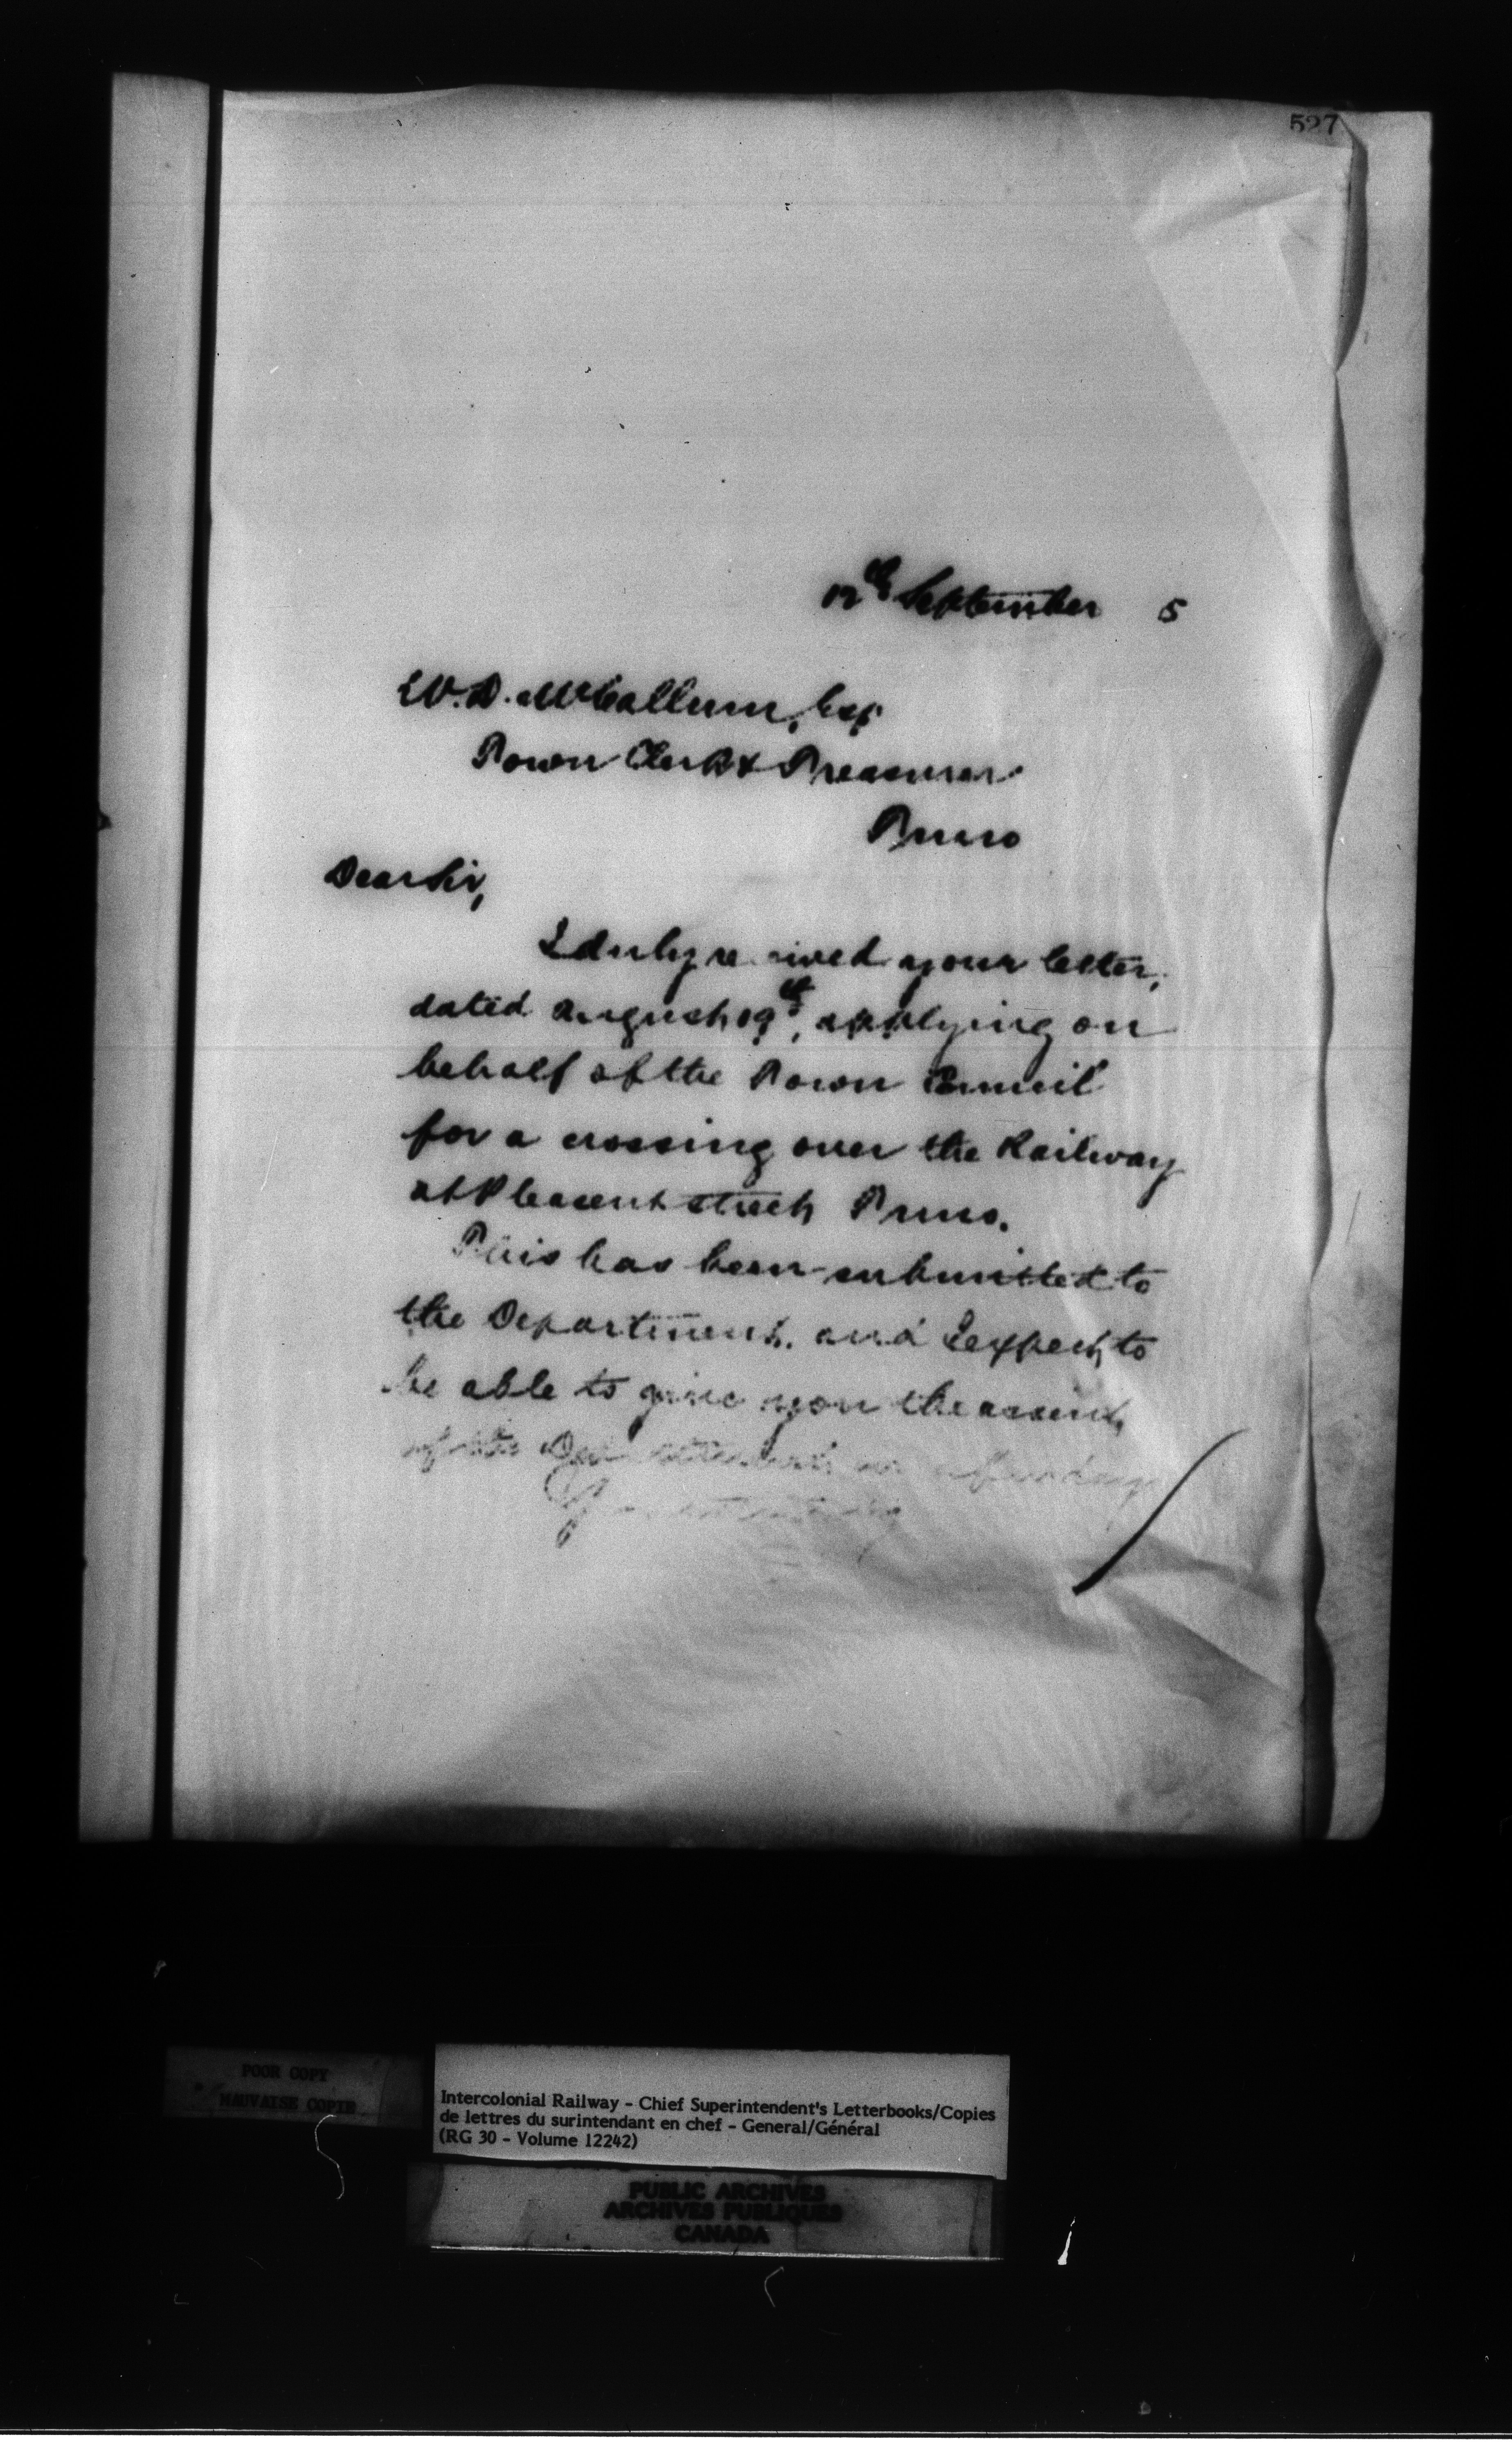 527
12th September 5
W. D. McCallum, Esq
Town Clerk & Treasurer
Truro
Dear Sir,
I duly received your letter,
dated August 19th, applying on
behalf of the Town Council
for a crossing over the Railway
at Pleasent street Truro.
This has been submitted to
the Department, and I expect to
be able to give you the assent
of the
POOR COPY
MAUVAISE COPIE
Intercolonial Railway - Chief Superintendent's Letterbooks/Copies
de lettres du surintendant en chef - General/Général
(RG 30 - Volume 12242)
PUBLIC ARCHIVES
ARCHIVES PUBLIQUES
CANADA